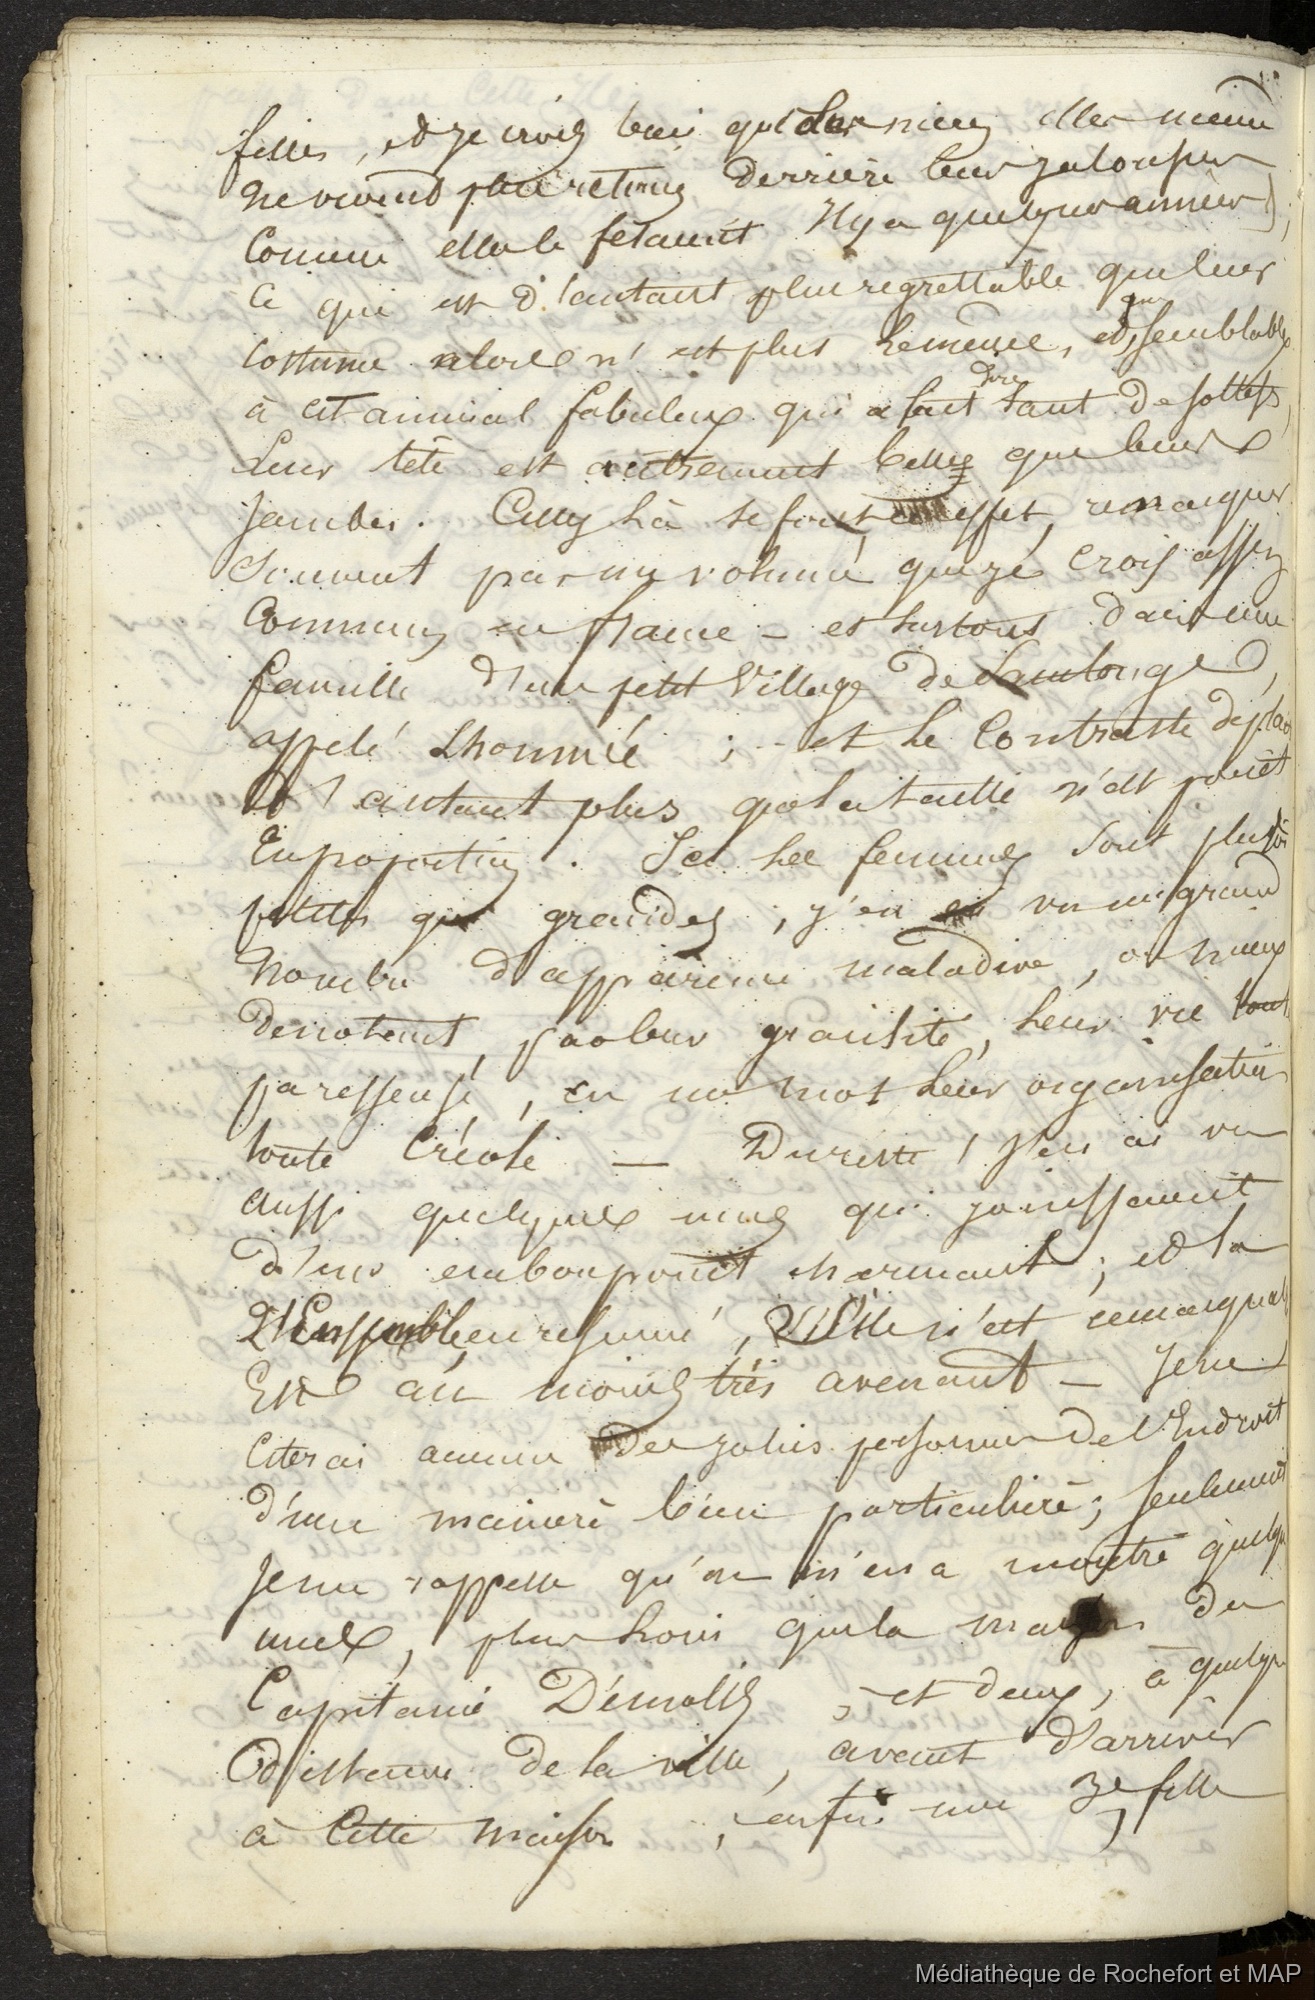 filles, et je crois bien que ces dernières elles même
ne vivent plus retenues derrière leurs jalousies
comme elles le fesaient il y a quelques années),
ce qui est d'autant plus regrettable que leur
costume alors n'est plus le même, et que, semblables
à cet animal fabuleux qui a fait dire tant de sottises,
leur tête est autrement belle que leurs
jambes. Celles là se font, en effet, remarquer
souvent par un volume que je crois assez
commun en france - et surtout dans une
famille d'un petit village de Saintonge,
appelé Lhoumée ; - et le contraste déplait
d'autant plus que la taille n'est point
en proportion. Ici les femmes sont plutôt
petites que grandes ; j'en ai vu un grand
nombre d'apparence maladive, ou mieux
dénotant, par leur gracilité, leur vie tout
paresseuse, en un mot leur organisation
toute créole — Du reste ! j'en ai vu
aussi quelques unes qui jouissaient
d'un embonpoint charmant ; et la
L'Ensemble, en résumé, s'il n'est remarquable
Est au moins très avenant — Je ne
citerai aucune des jolies personnes de l'Endroit
d'une manière bien particulière ; seulement
je me rappelle qu'on m'en a montré quelqu'
unes, plus loin que la maison du
Capitaine Démolis ; et deux, à quelque
distance de la ville, avant d'arriver
à cette maison ; enfin une 3e fille